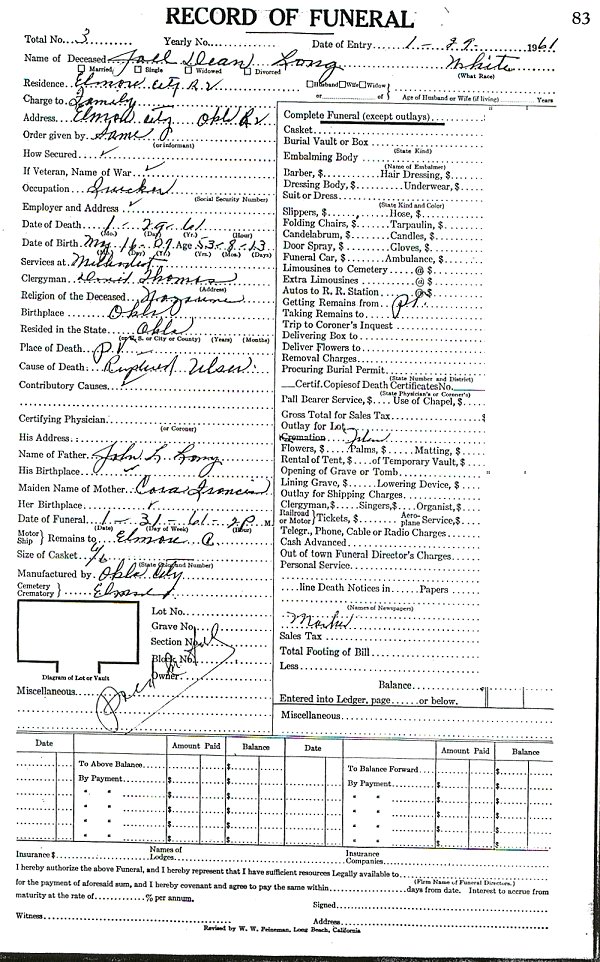 RECORD OF FUNERAL
83
Total No. 3 Yearly No. Date of Entry 1 - 29 - 1961
Name of Deceased Dean Long White
Married Single Widowed Divorced (What Race)
Residence Elmore City Rt Husband Wife Widow
or of Age of Husband or Wife (if living) Years
Charge to Family
Address Elmore City Okla
Order given by Same
(or informant)
How Secured
If Veteran, Name of War
Occupation Trucker
(Social Security Number)
Employer and Address
Date of Death 1 - 29 - 61
(Mo.) (Day) (Yr.) (Hour)
Date of Birth My 16 - 07 Age 53 - 8 - 13
(Mo.) (Day) (Yr.) (Yrs.) (Mos.) (Days)
Services at
Clergyman Thomas
(Address)
Religion of the Deceased
Birthplace Okla
Resided in the State Okla
(or U. S. or City or County) (Years) (Months)
Place of Death P.V.
Cause of Death Ruptured Ulser
Contributory Causes
Certifying Physician
(or Coroner)
His Address
Name of Father John L. Long
His Birthplace
Maiden Name of Mother Cora
Her Birthplace
Date of Funeral 1 - 31 - 61 - 2P M.
(Date) (Day of Week) (Hour)
Motor Ship Remains to Elmore C.
Size of Casket 6/6
(State Kind and Number)
Manufactured by Okla City
Cemetery Crematory Elmore
Lot No.
Grave No.
Section No.
Block No.
Owner
Diagram of Lot or Vault
Miscellaneous
Paid
Complete Funeral (except outlays)
Casket
Burial Vault or Box
(State Kind)
Embalming Body
(Name of Embalmer)
Barber, $ Hair Dressing, $
Dressing Body, $ Underwear, $
Suit or Dress
(State Kind and Color)
Slippers, $ Hose, $
Folding Chairs, $ Tarpaulin, $
Candelabrum, $ Candles, $
Door Spray, $ Gloves, $
Funeral Car, $ Ambulance, $
Limousines to Cemetery @ $
Extra Limousines @ $
Autos to R. R. Station @ $
Getting Remains from
Taking Remains to
Trip to Coroner's Inquest
Delivering Box to
Deliver Flowers to
Removal Charges
Procuring Burial Permit
(State Number and District)
Certif. Copies of Death Certificates No.
(State Physician's or Coroner's)
Pall Bearer Service, $ Use of Chapel, $
Gross Total for Sales Tax $
Outlay for Lot
Cremation
Flowers, $ Palms, $ Matting, $
Rental of Tent, $ of Temporary Vault, $
Opening of Grave or Tomb
Lining Grave, $ Lowering Device, $
Outlay for Shipping Charges
Clergyman, $ Singers, $ Organist, $
Railroad or Motor Tickets, $ Aeroplane Service, $
Telegr., Phone, Cable or Radio Charges
Cash Advanced
Out of town Funeral Director's Charges
Personal Service
line Death Notices in Papers
(Names of Newspapers)
Sales Tax
Total Footing of Bill
Less
Balance
Entered into Ledger, page or below.
Miscellaneous
Date Amount Paid Balance Date Amount Paid Balance
To Above Balance $ To Balance Forward $
By Payment $ $ By Payment $ $
" " $ $ " " $ $
" " $ $ " " $ $
" " $ $ " " $ $
" " $ $ " " $ $
Insurance $ Names of Lodges Insurance Companies
I hereby authorize the above Funeral, and I hereby represent that I have sufficient resources Legally available to
(Firm Name of Funeral Directors.)
for the payment of aforesaid sum, and I hereby covenant and agree to pay the same within days from date. Interest to accrue from
maturity at the rate of % per annum. Signed
Witness Address
Revised by W. W. Feineman, Long Beach, California